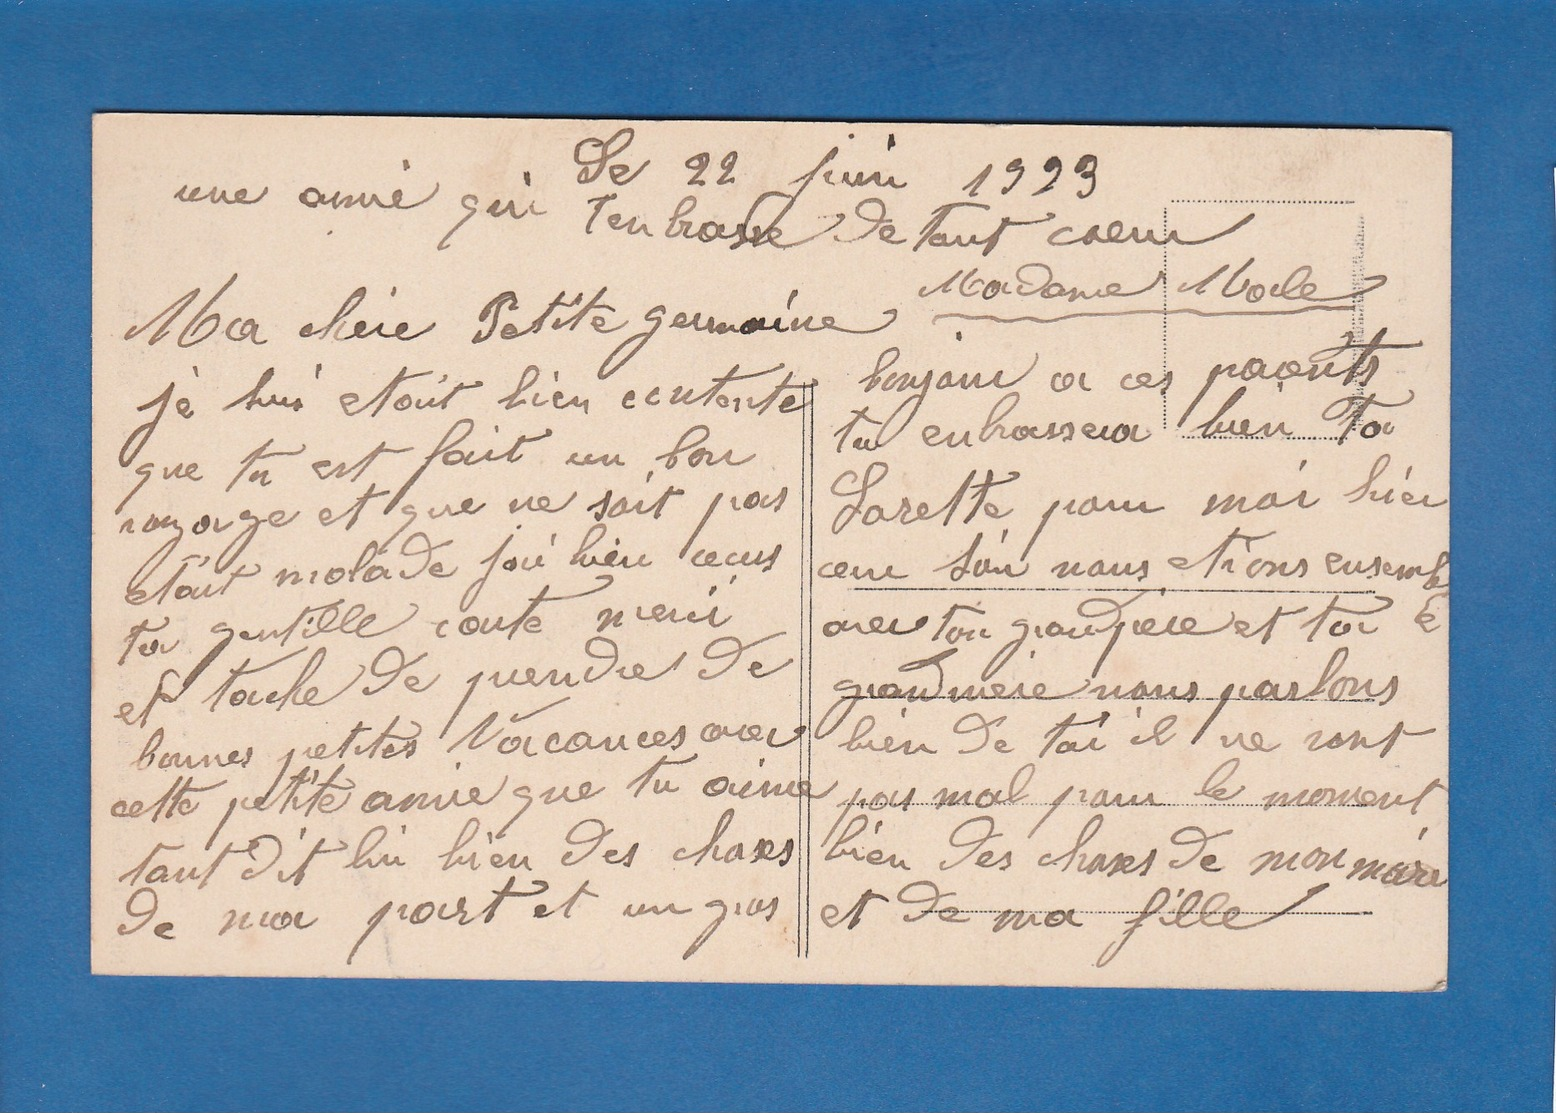 Le 22 juin 1923
une amie qui t'enbrasse de tout coeur
Madame
Ma chère Petite germaine
je suis etait bien contente
que tu est fait un bon
voyage et que ne soit pas
etait malade jai bien recus
ta gentille carte merci
et tache de prendre de
bonnes petites Vacances avec
cette petite amie que tu aime
tant dit lui bien des choses
de ma part et un gros
bonjour a ces parents
tu enbrassera bien Ta
pour moi hier
au soir nous etions ensemble
avec ton grandpère et ta
grandmère nous parlons
bien de toi il ne vont
pas mal pour le moment
bien des choses de mon mari
et de ma fille